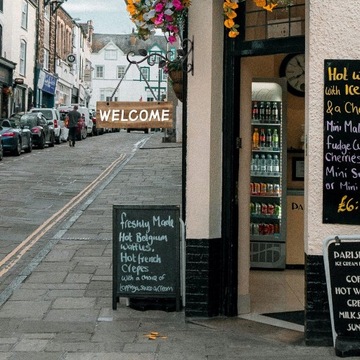 WELCOME
freshly Made
Hot Belgium
Waffles,
Hot french
Crepes
with a choice of
Hot w
with Ice
& a Ch
Mini Ma
fudge, Cu
Cherries
Mini Su
or Mini
£6:
PARLI
ICE CREAM
CO
HOT W
CRE
MILKS
SUN